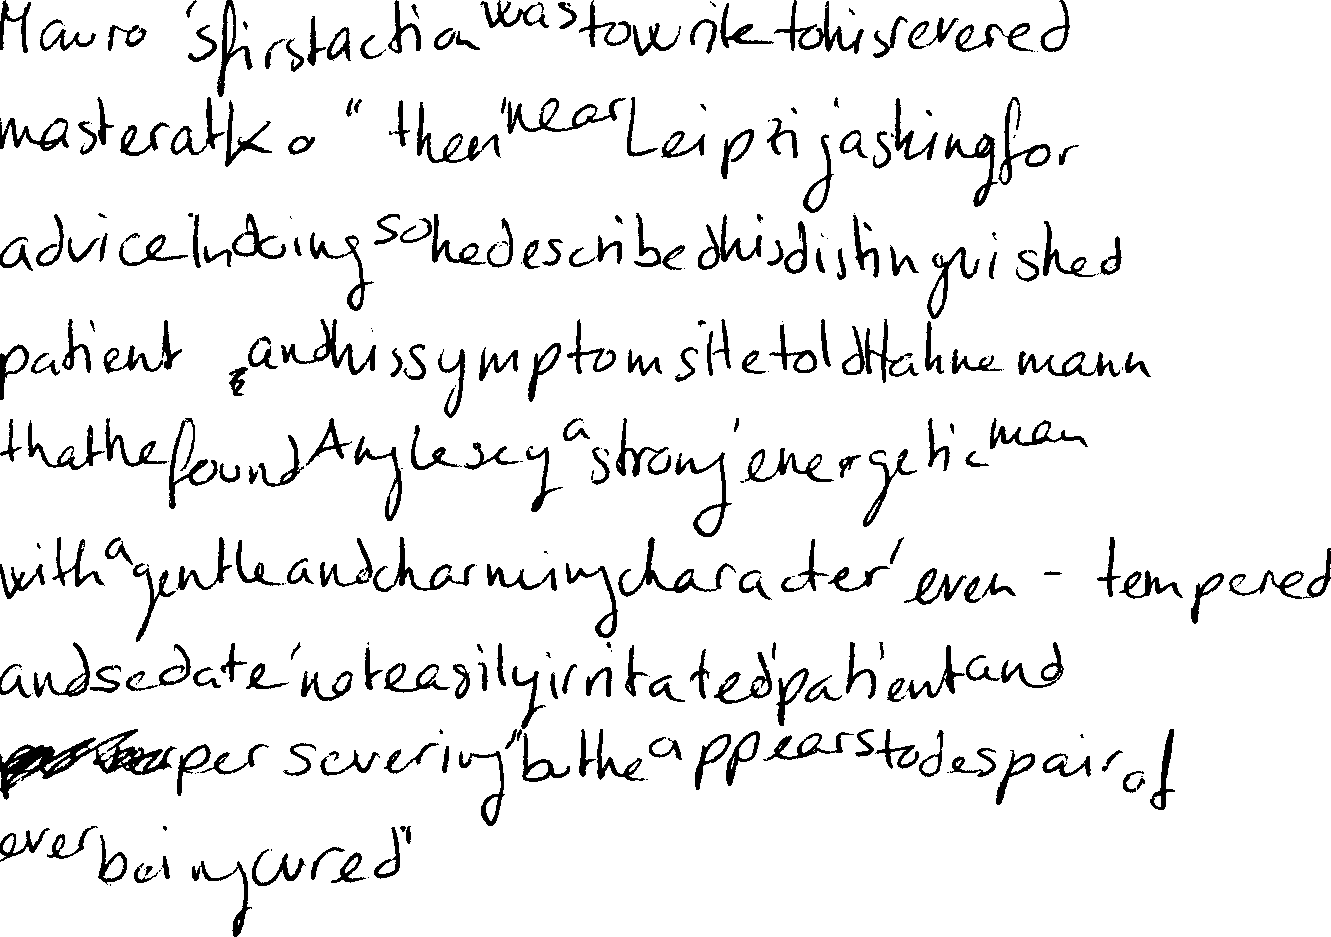 Mauro 's first action was to write to his revered
master at Ko " then " near Leipzig asking for
advice In doing so he described his distinguished
patient , and his symptoms He told Hahnemann
that he found Anglesey a strong ' energetic man
with a gentle and charming character ' even - tempered
and sedate ' not easily irritated ' patient and
persevering " but he appears to despair of
ever being cured "